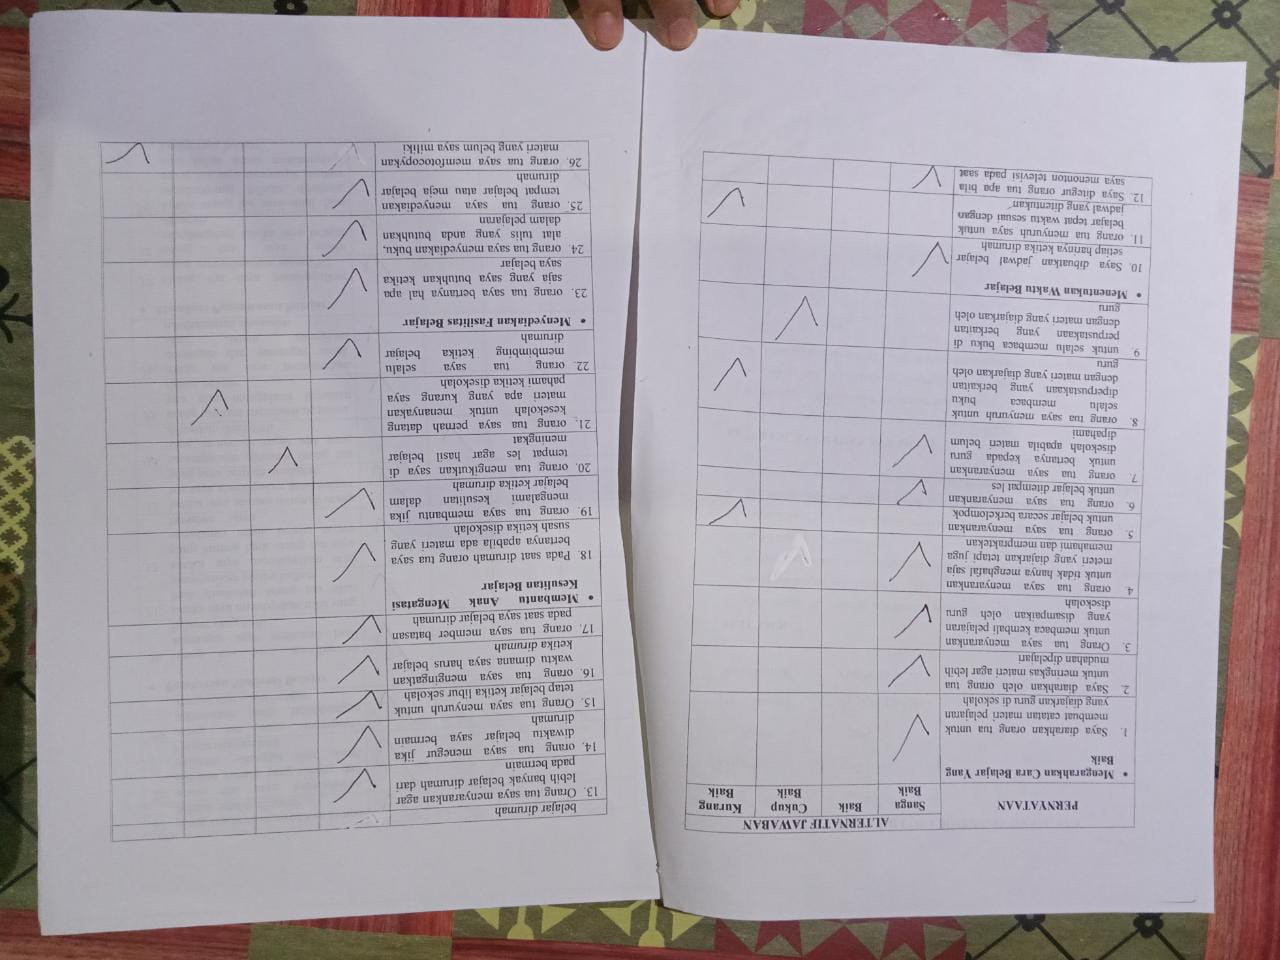 PERNYATAAN
ALTERNATIF JAWABAN
Sanga
Baik
Baik
Cukup
Baik
Kurang
Baik
• Mengarahkan Cara Belajar Yang
Baik
1. Saya diarahkan orang tua untuk
membuat catatan materi pelajaran
yang diajarkan guru di sekolah
2. Saya diarahkan oleh orang tua
untuk meringkas materi agar lebih
mudahan dipelajari
3. Orang tua saya menyarankan
untuk membaca kembali pelajaran
yang disampaikan oleh guru
disekolah
4 orang tua saya menyarankan
untuk tidak hanya menghafal saja
meteri yang diajarkan tetapi juga
memahami dan mempraktekan
5. orang tua saya menyarankan
untuk belajar secara berkelompok
6. orang tua saya menyarankan
untuk belajar ditempat les
7. orang tua saya menyarankan
untuk bertanya kepada guru
disekolah apabila materi belum
dipahami
8. orang tua saya menyuruh untuk
selalu membaca buku
diperpustakaan yang berkaitan
dengan materi yang diajarkan oleh
guru
9. untuk selalu membaca buku di
perpustakaan yang berkaitan
dengan materi yang diajarkan oleh
guru
• Menentukan Waktu Belajar
10. Saya dibuatkan jadwal belajar
setiap harinya ketika dirumah
11. orang tua saya menyuruh saya untuk
belajar tepat waktu sesuai dengan
jadwal yang ditentukan
12. Saya ditegur orang tua apa bila
saya menonton televisi pada saat
belajar dirumah
13. Orang tua saya menyarankan agar
lebih banyak belajar dirumah dari
pada bermain
14. orang tua saya menegur jika
diwaktu belajar saya bermain
dirumah
15. Orang tua saya menyuruh untuk
tetap belajar ketika libur sekolah
16. orang tua saya mengingatkan
waktu dimana saya harus belajar
ketika dirumah
17. orang tua saya member batasan
pada saat saya belajar dirumah
• Membantu Anak Mengatasi
Kesulitan Belajar
18. Pada saat dirumah orang tua saya
bertanya apabila ada materi yang
susah ketika disekolah
19. orang tua saya membantu jika
mengalami kesulitan dalam
belajar ketika dirumah
20. orang tua mengikutkan saya di
tempat les agar hasil belajar
meningkat
21. orang tua saya pernah datang
kesekolah untuk menanyakan
materi apa yang kurang saya
pahami ketika disekolah
22. orang tua saya selalu
membimbing ketika belajar
dirumah
• Menyediakan Fasilitas Belajar
23. orang tua saya bertanya hal apa
saja yang saya butuhkan ketika
saya belajar
24. orang tua saya menyediakan buku,
alat tulis yang anda butuhkan
dalam pelajaran
25. orang tua saya menyediakan
tempat belajar atau meja belajar
dirumah
26. orang tua saya memfotocopykan
materi yang belum saya miliki